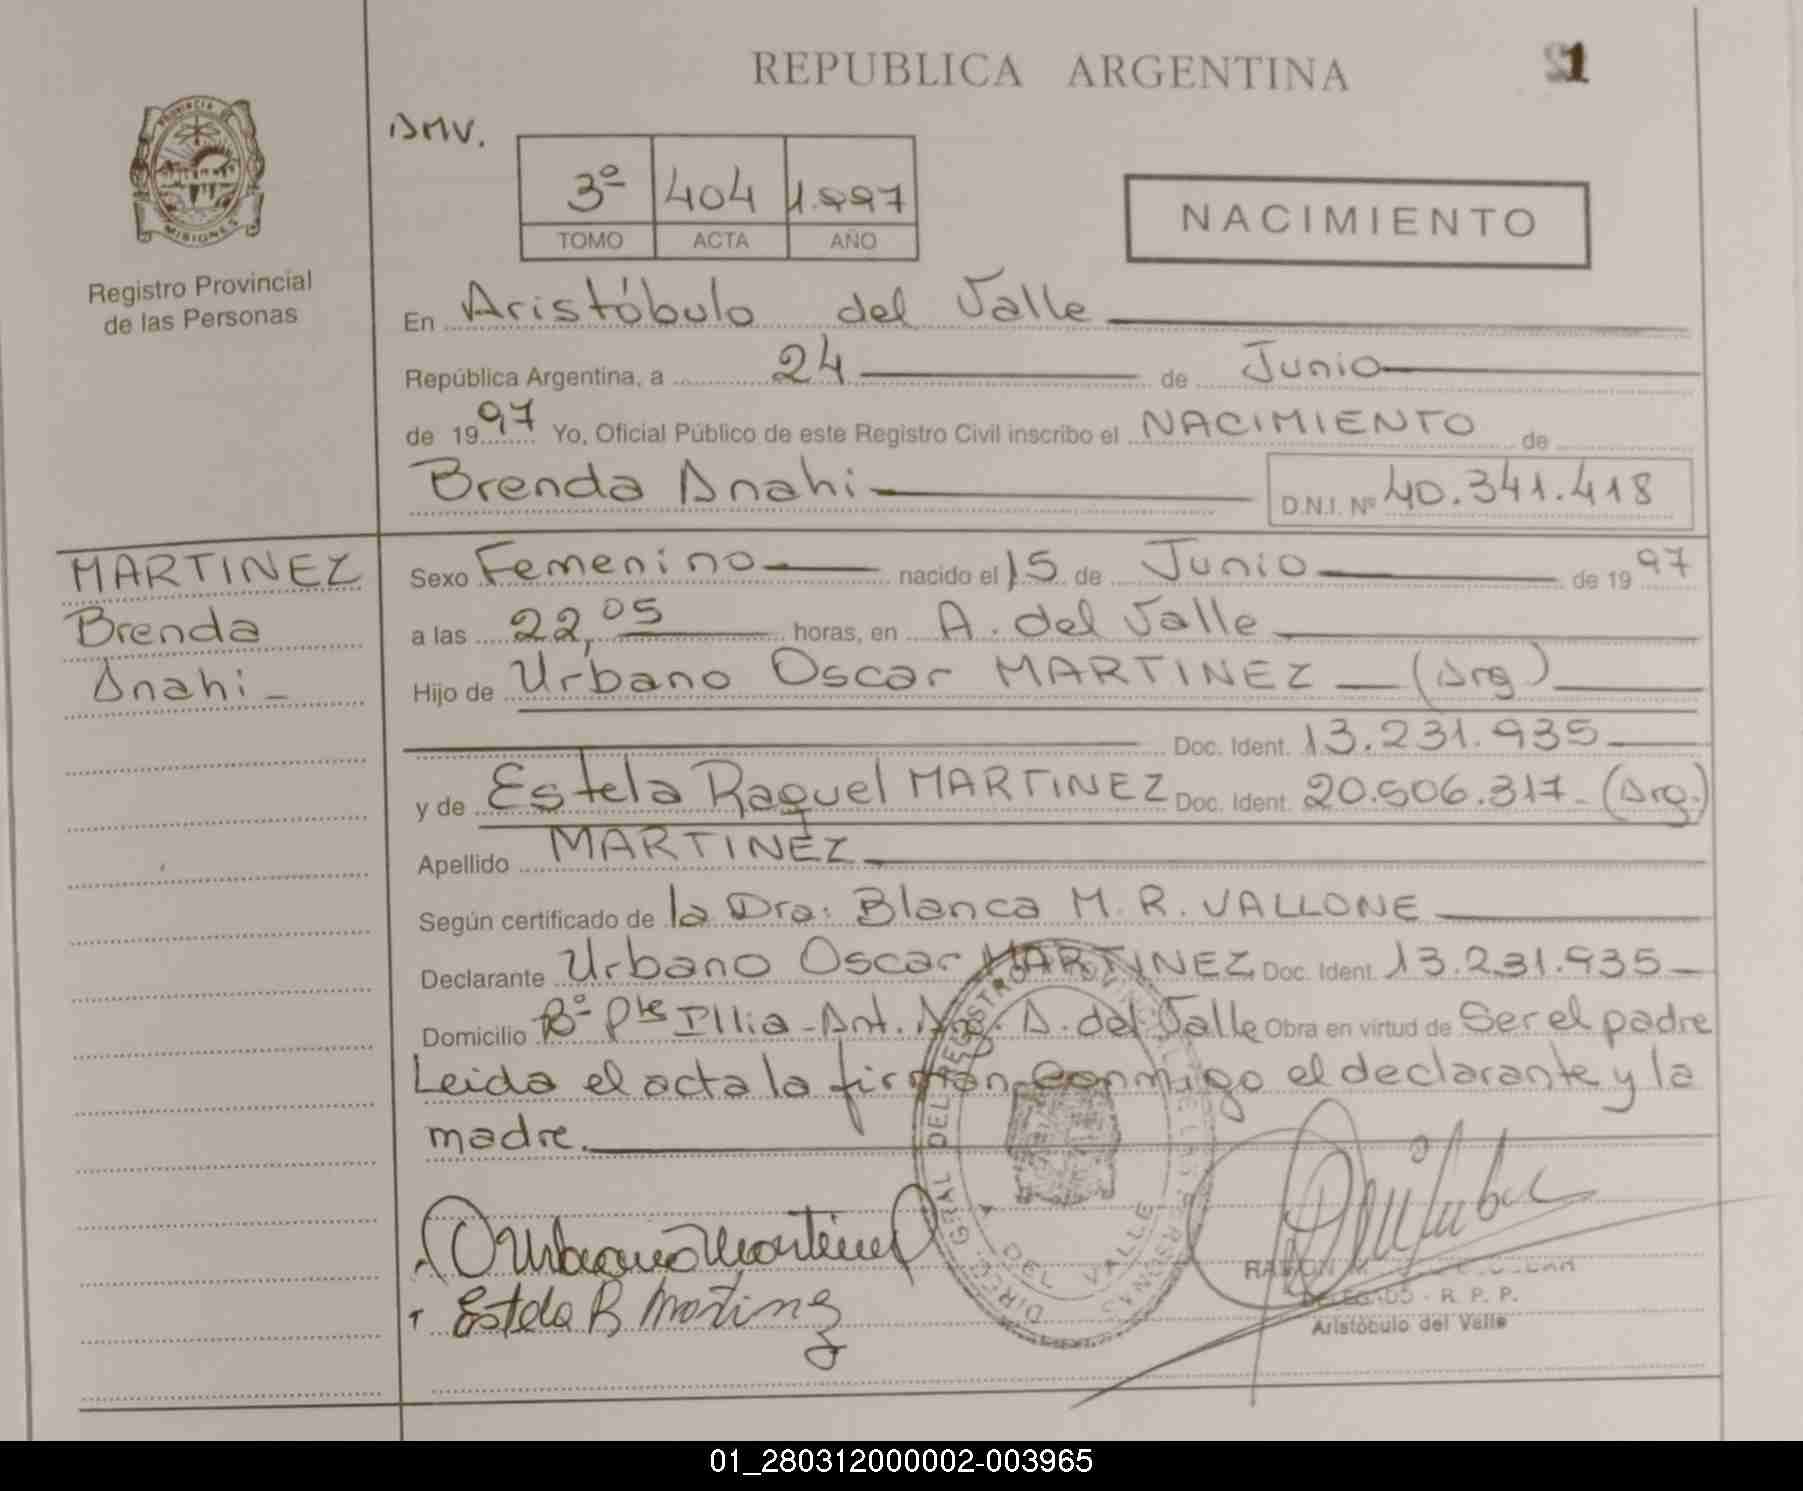 REPUBLICA ARGENTINA
1
PROVINCIA DE
MISIONES
Registro Provincial
de las Personas
AMV.
3º 404 1.997
TOMO ACTA AÑO
NACIMIENTO
En Aristóbulo del Valle
República Argentina, a 24 de Junio
de 1997 Yo, Oficial Público de este Registro Civil inscribo el NACIMIENTO de
Brenda Anahi D.N.I. Nº 40.341.418
MARTINEZ
Brenda
Anahi -
Sexo Femenino nacido el 15 de Junio de 1997
a las 22,05 horas, en A. del Valle
Hijo de Urbano Oscar MARTINEZ (Arg)
Doc. Ident. 13.231.935
y de Estela Raquel MARTINEZ Doc. Ident. 20.506.317 - (Arg.)
Apellido MARTINEZ
Según certificado de la Dra: Blanca M. R. VALLONE
Declarante Urbano Oscar MARTINEZ Doc. Ident. 13.231.935
Domicilio Bº Pte Illia - Ant. A. del Valle Obra en virtud de Ser el padre
Leida el acta la firman conmigo el declarante y la
madre.
O Urbano Martinez
Estela R Martinez
DIREC. GRAL DEL REGISTRO
DEL VALLE
RAMON
DELEGADO - R. P. P.
Aristóbulo del Valle
01_280312000002-003965